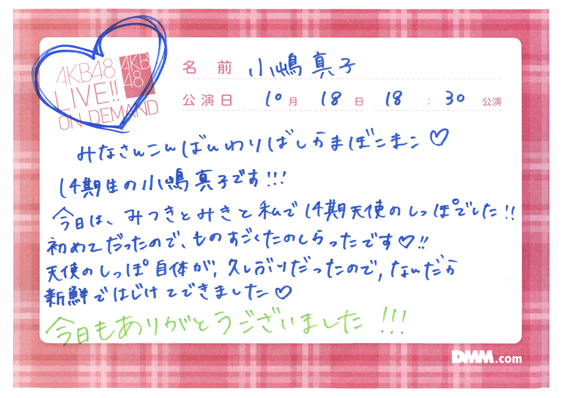 AKB48
LIVE!!
ON DEMAND
AKB
48
名前 小嶋真子
公演日 10月 18日 18:30 公演
みなさんこんばんわりばしかまぼこまこ♡
14期生の小嶋真子です!!!
今日は、みつきとみきと私で14期天使のしっぽでした!!
初めてだったので、ものすごくたのしらったです♡!!
天使のしっぽ自体が、久しぶりだったので、なんだか
新鮮ではじけてできました♡
今日もありがとうございました!!!
DMM.com